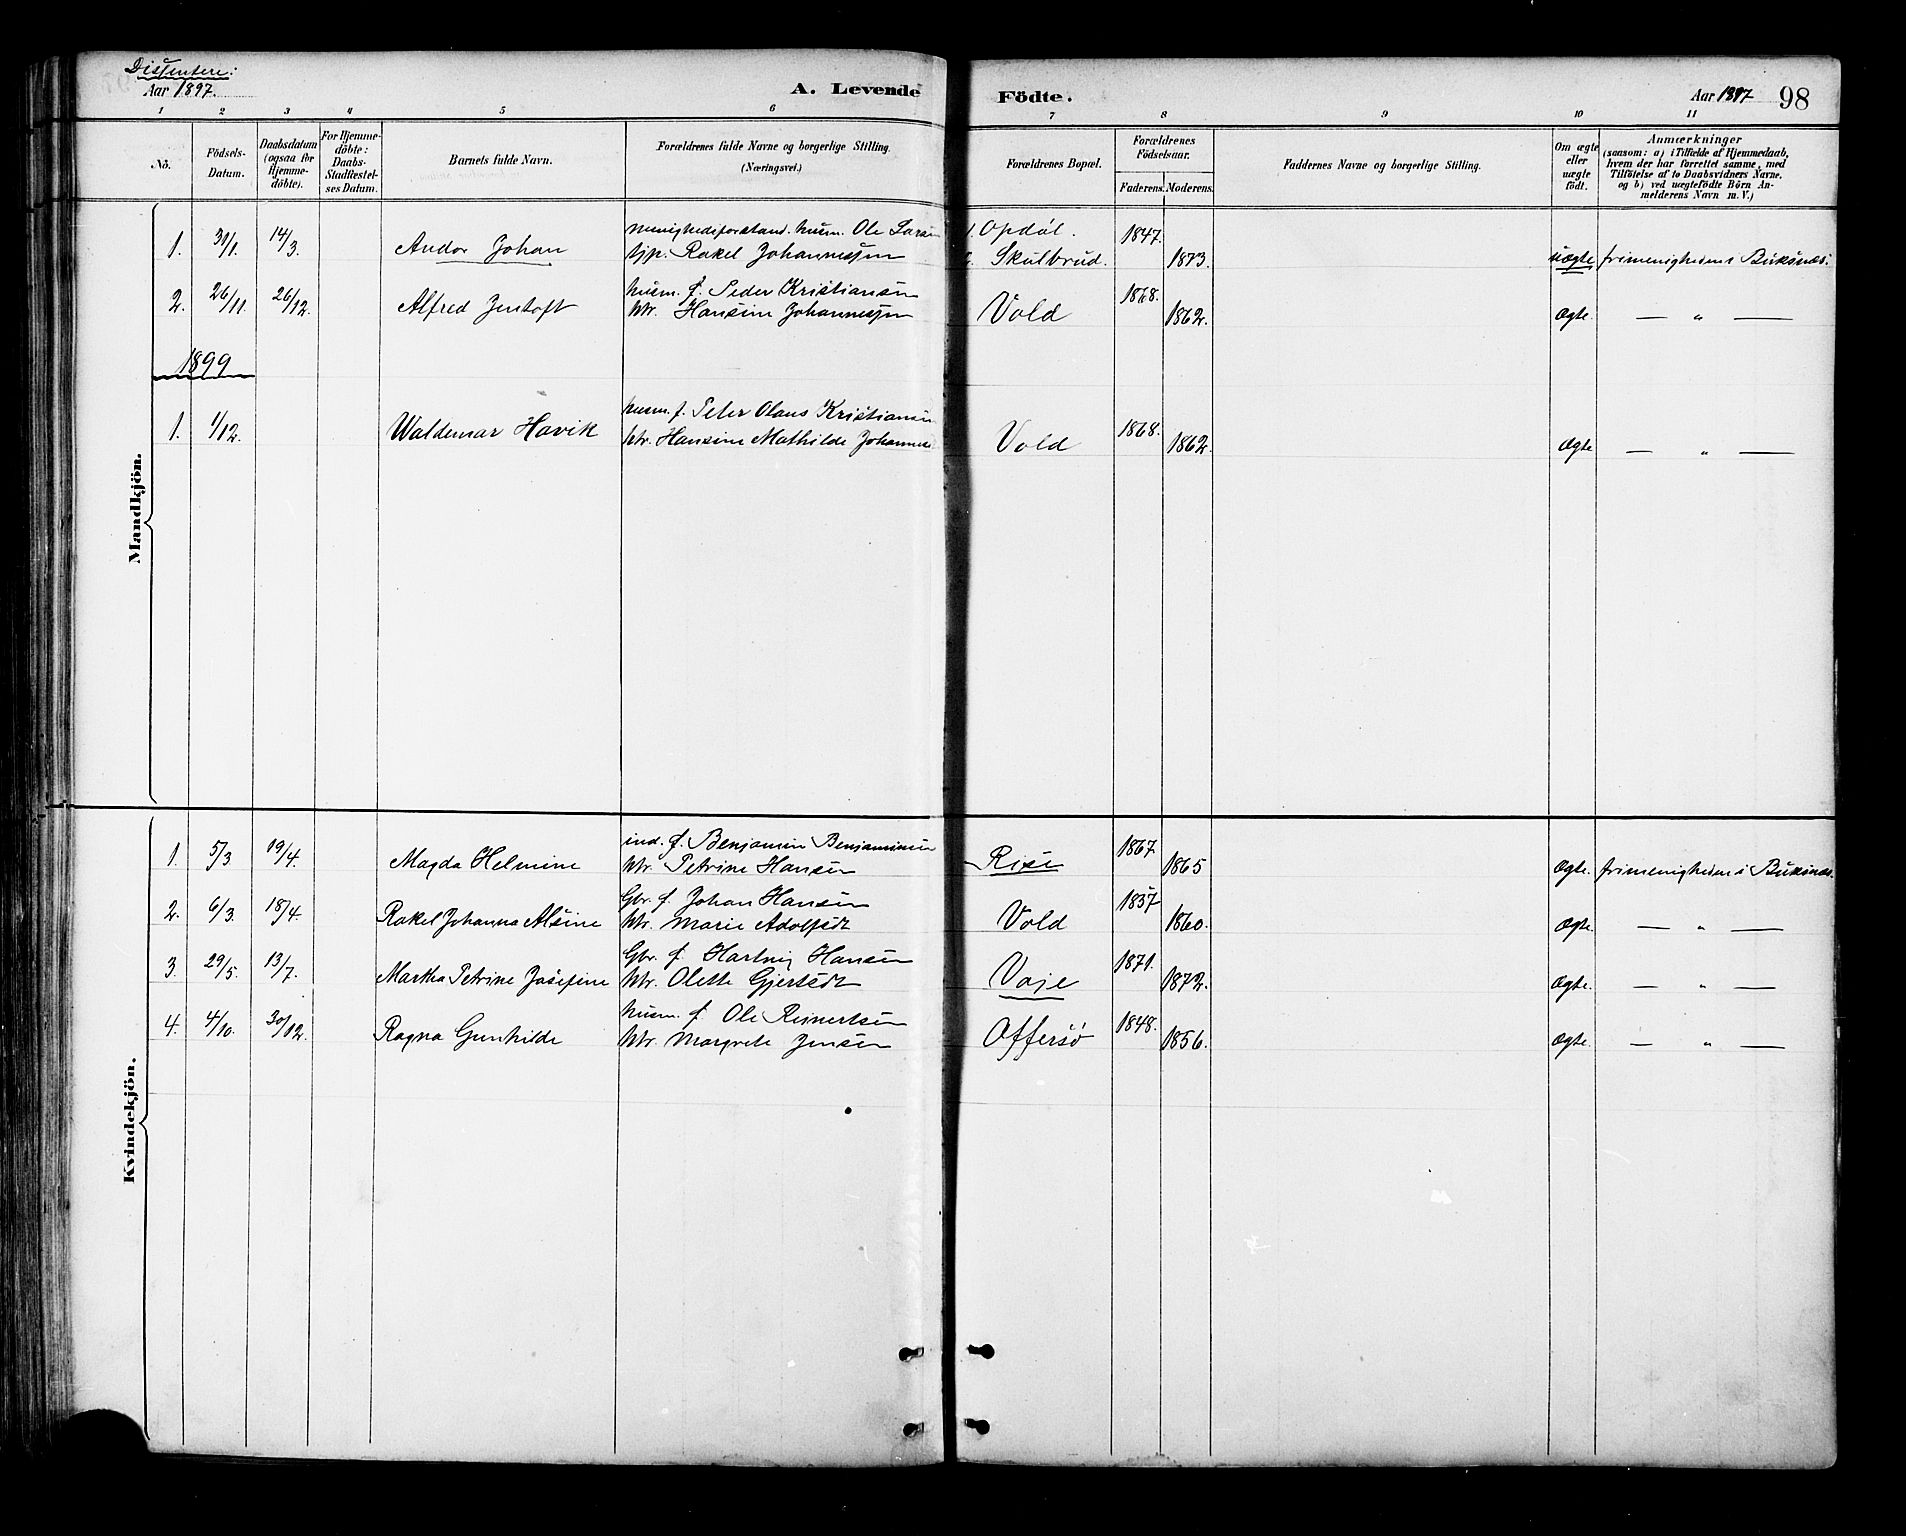 Dissentere:
Aar 1897.
A. Levende
Födte.
Aar 1897
98
1 2 3 4 5 6 7 8 9 10 11
Nö.
Födsels-
Datum.
Daabsdatum
(ogsaa för
Hjemme-
döbte).
For Hjemme-
döbte:
Daabs-
Stadfæstel-
ses Datum.
Barnets fulde Navn.
Forældrenes fulde Navne og borgerlige Stilling.
(Næringsvei.)
Forældrenes Bopæl.
Forældrenes
Födselsaar.
Faderens. Moderens.
Faddernes Navne og borgerlige Stilling.
Om ægte
eller
uægte
födt.
Anmærkninger
(saasom: a) i Tilfælde af Hjemmedaab,
hvem der har forrettet samme, med
Tilföielse af to Daabsvidners Navne,
og b) ved uægtefödte Börn An-
melderens Navn m. V.)
Mandkjön.
1. 31/1. 14/3. Andor Johan
menighedsforstand. husm. Ole Larsen
tjp. Rakel Johannessen
Opdøl.
Skulbrud.
1847.
1873.
uægte frimenigheden i Buksnæs.
2. 26/11. 26/12. Alfred Jentoft
husm. f. Peder Kristiansen
htr. Hansine Johannessen
Vold
1868.
1862.
Ægte. — „ —
1899
1. 1/12. Waldemar Havik
husm. f. Peter Olaus Kristiansen
htr. Hansine Mathilde Johannes
Vold
1868.
1862.
Ægte — „ —
Kvindekjön.
1. 5/3 19/4. Magda Helmine
ind. f. Benjamin Benjaminsen
htr. Petrine Hansen
Risø
1867
1865
Ægte. frimenigheden i Buksnæs.
2. 6/3. 18/4. Rakel Johanna Alsine
Gbr. f. Johan Hansen
htr. Marie Adolfsdt
Vold
1837
1860.
Ægte. — „ —
3. 29/5. 13/7. Martha Petrine Josefine
Gbr. f. Hartvig Hansen
htr. Olette Gjertsdt
Vaje
1871.
1872.
Ægte. — „ —
4. 4/10. 30/12. Ragna Gunhilde
husm. f. Ole Reinertsen
htr. Margrete Jensen
Offersø
1848.
1856.
Ægte. — „ —